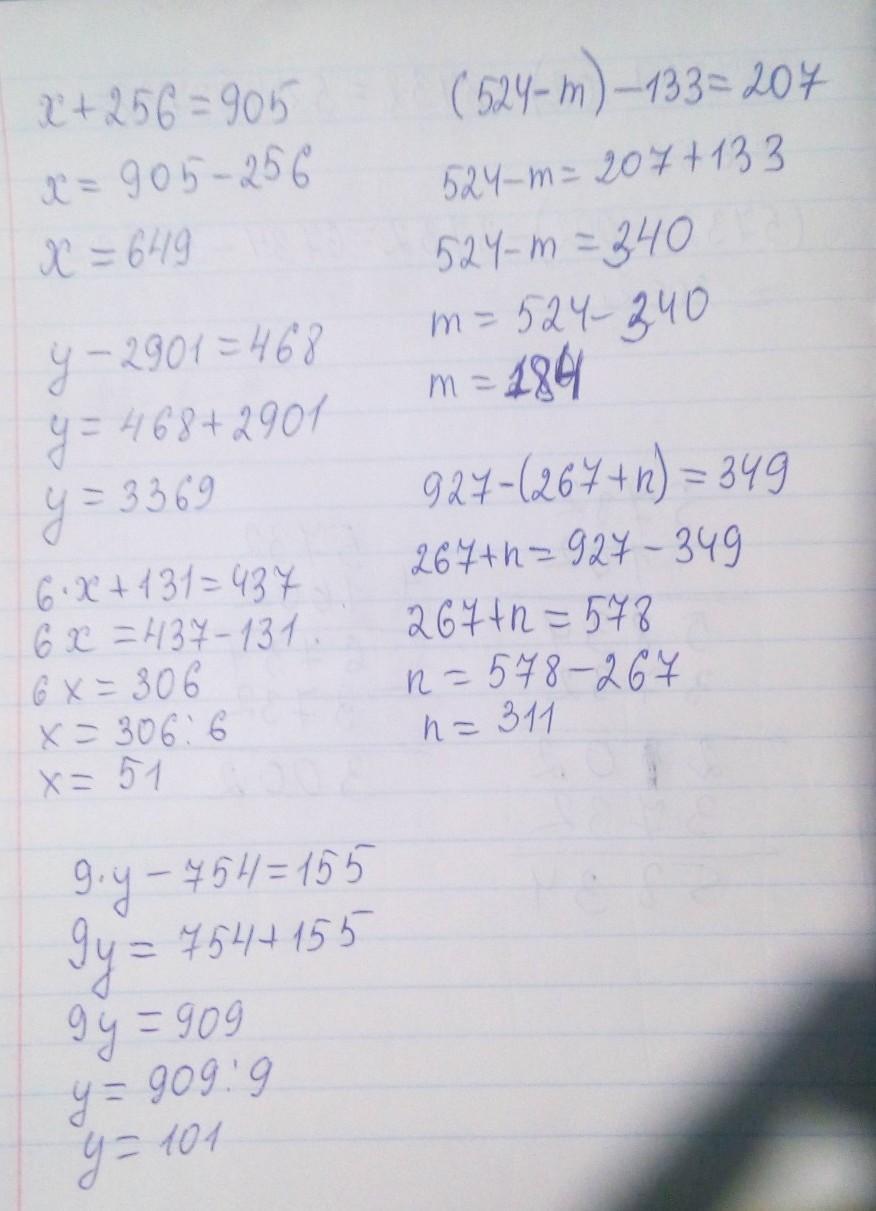 x+256=905
x=905-256
x=649
y-2901=468
y=468+2901
y=3369
6·x+131=437
6x=437-131
6x=306
x=306:6
x=51
9·y-754=155
9y=754+155
9y=909
y=909:9
y=101
(524-m)-133=207
524-m=207+133
524-m=340
m=524-340
m=184
927-(267+n)=349
267+n=927-349
267+n=578
n=578-267
n=311